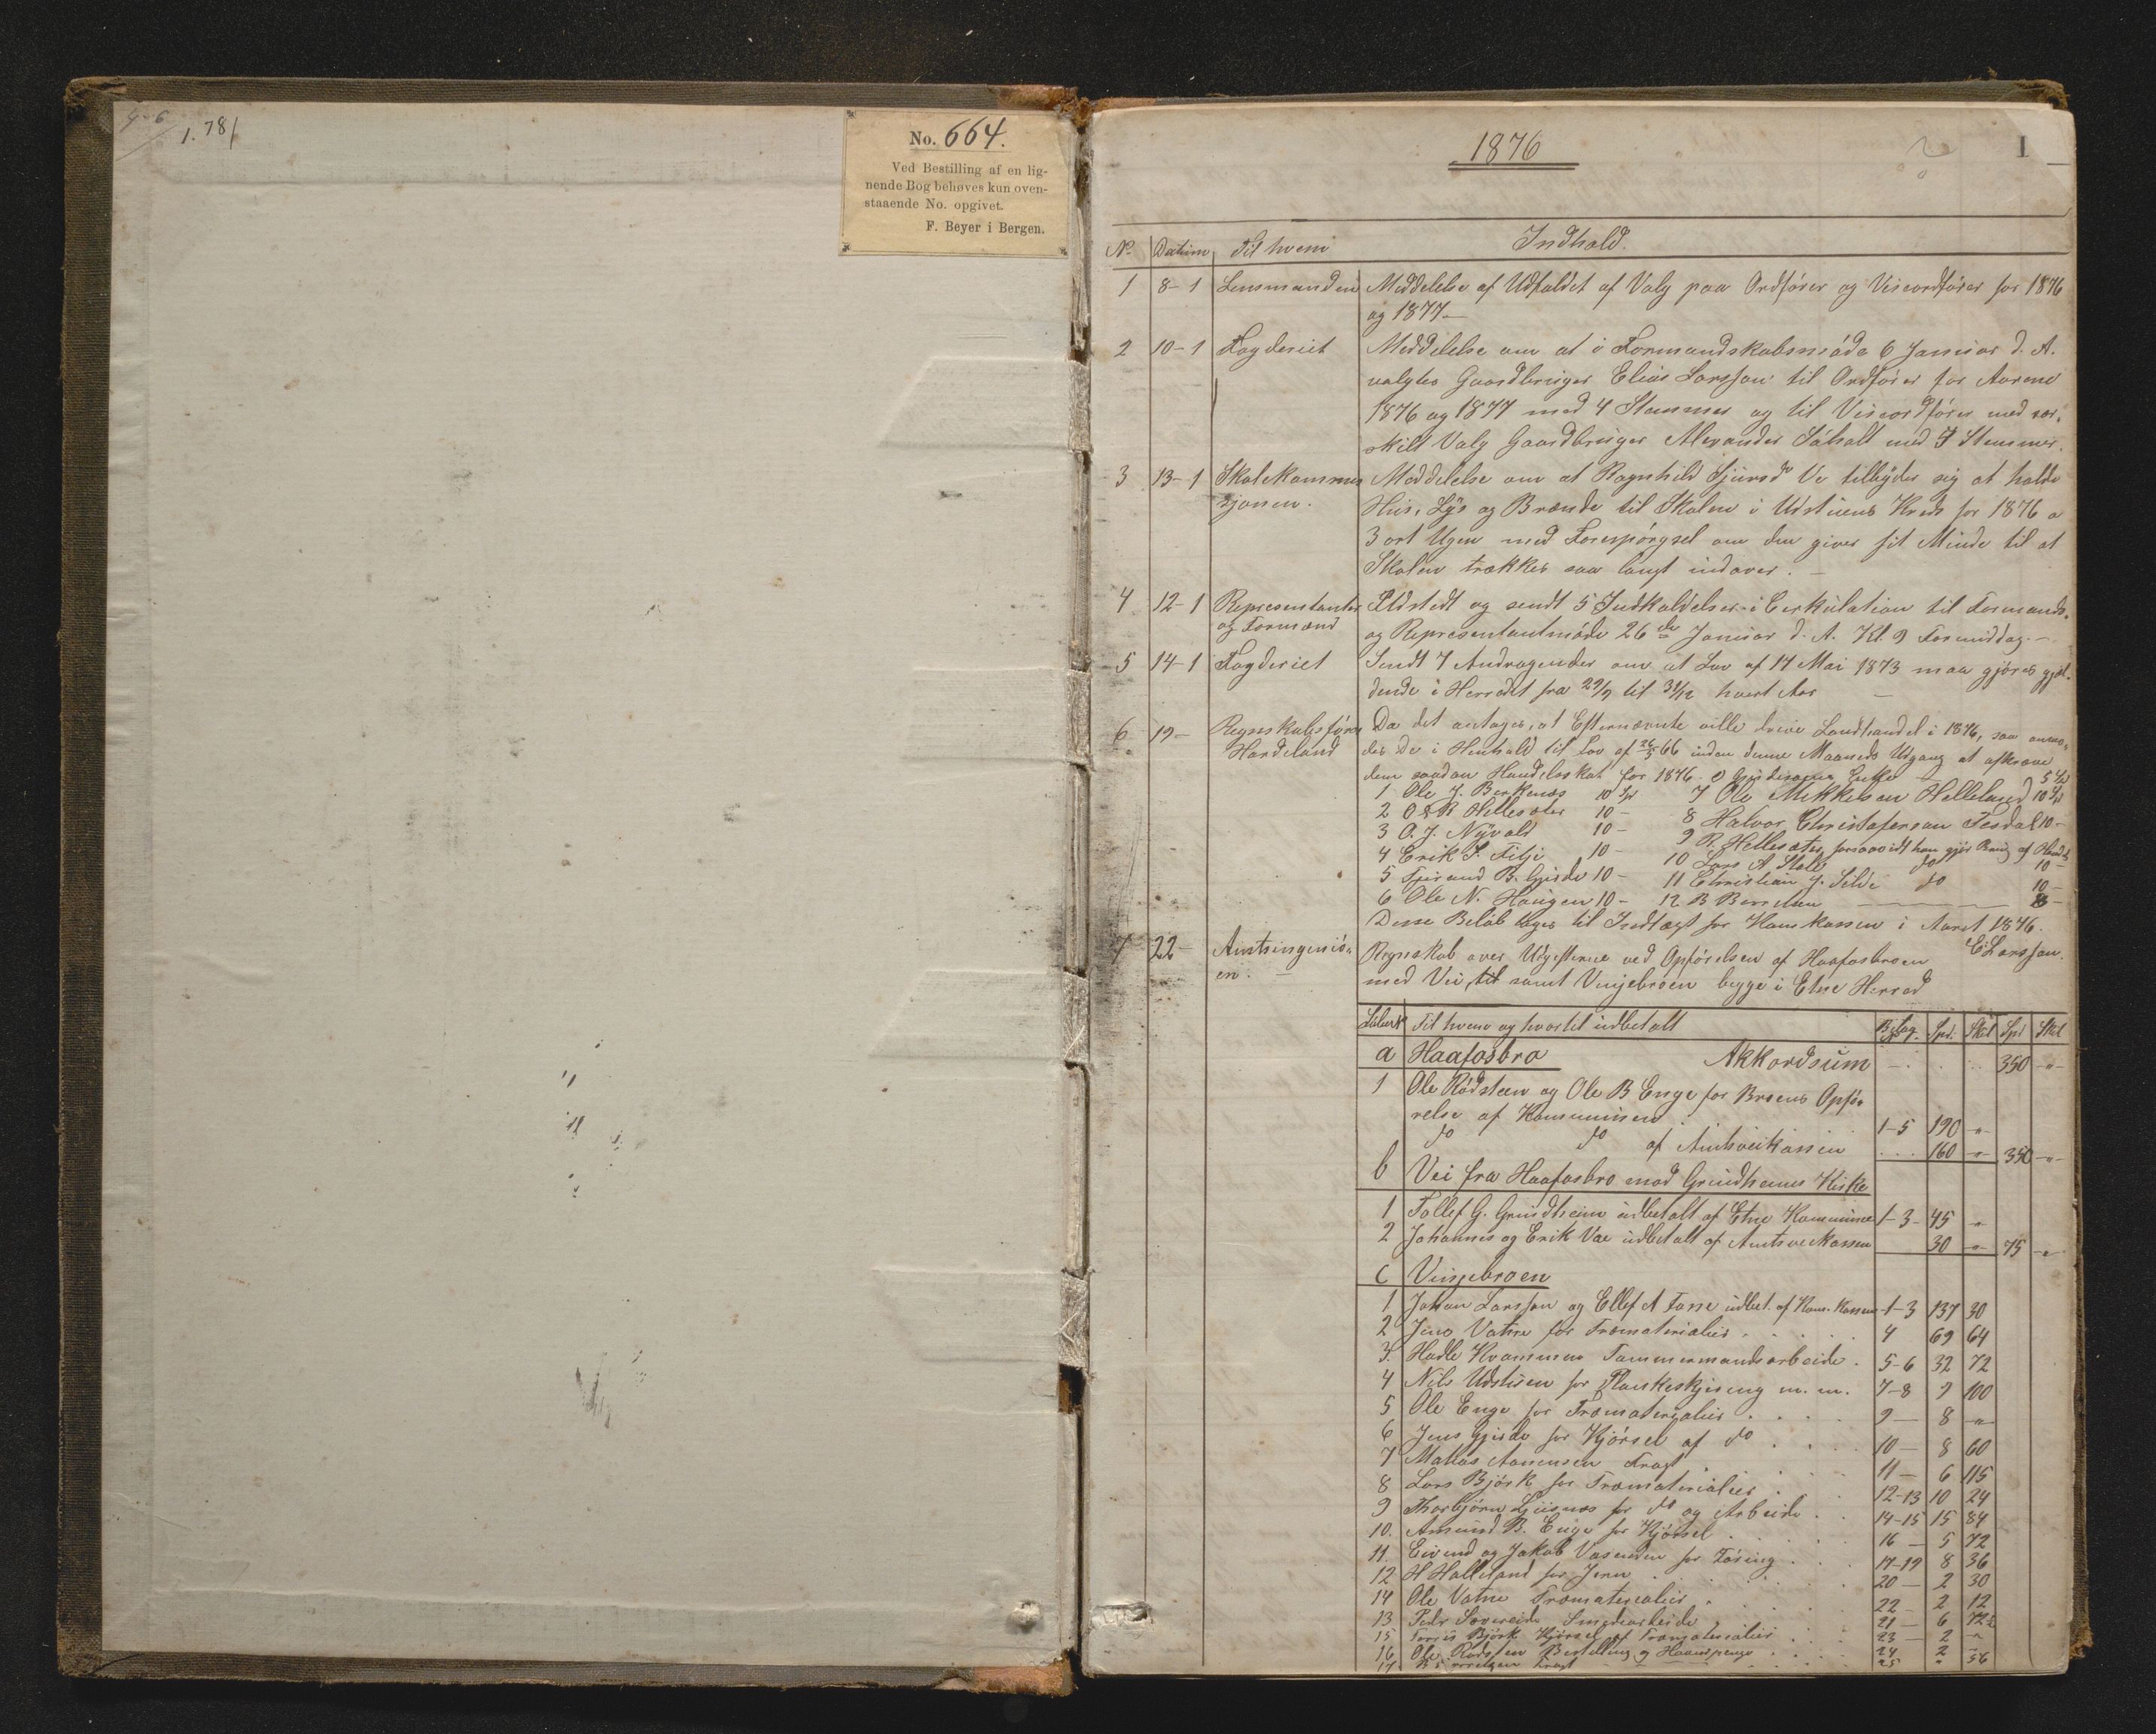 1.78/
No. 664.
Ved Bestilling af en lig-
nende Bog behøves kun oven-
staaende No. opgivet.
F. Beyer i Bergen.
1876
1
No. Datum Til hvem Indhold.
1 8-1 Lensmanden Meddelelse af Udfaldet af Valg paa Ordfører og Viceordfører for 1876
og 1877.-
2 10-1 Fogderiet Meddelelse om at i Formandskabsmøde 6 Januar d. A.
valgtes Gaardbruger Elias Larsson til Ordfører for Aarene
1876 og 1877 med 4 Stemmer og til Viceordfører med sær-
skilt Valg Gaardbruger Alexander Såhalt med 7 Stemmer.
3 13-1 Skolekommis- Meddelelse om at Ragnhild Sjursd Ve tilbyder sig at holde
sjonen. Hus, Lys og Brænde til Skolen i Udstuens Kreds for 1876 a
3 ort Ugen med Forespørgsel om den giver sit Minde til at
Skolen trækkes saa langt indover.-
4 12-1 Representanter Udstedt og sendt 5 Indkaldelser i Cirkulation til Formands-
og Formænd og Representantmøde 26de Januar d. A. Kl. 9 Formiddag.-
5 14-1 Fogderiet Sendt 7 Andragender om at Lov af 14 Mai 1873 maa gjøres gjæl-
dende i Herredet fra 29/9 til 31/12 hvert Aar
6 19- Regnskabsfører Da det antages, at Efternævnte ville drive Landhandel i 1876, saa anmo-
Hardeland des De i Henhold til Lov af 26/5 66 inden denne Maaneds Udgang at afkræve
dem saadan Handelsskat for 1876. Enke 5 Spd
1 Ole J. Berkenæs 10 Spd 7 Ole Mikkelsen Helleland 10 Spd
2 O & R Hellesøter 10 - 8 Halvor Christofersen Tesdal 10 -
3 O. J. Nyvold 10 - 9 R. Hellesøter forsaavidt han gjør Brug af Handel
4 Erik S. Filje 10 - 10 Lars A Stole do 10 -
5 B. Gjerde 10 - 11 Christian J. Silde do 10 -
6 Ole N. Haugen 10 - 12 B Børretzen
Disse Beløb tages til Indtægt for Komkassen i Aaret 1876.
E Larsson.
7 22- Amtsingeniø- Regnskab over Udgifterne ved Opførelsen af Haafosbroen
en. med Vei til samt Vinjebroen begge i Etne Herred
Løbe No Til hvem og hvortil udbetalt Bilag Spd. Skil Spd Skil
a Haafosbro Akkordsum 350 -"-
1 Ole Rødsteen og Ole B Enge for Broens Opfø-
relse af Kommunen 1-5 190 -"-
do do af Amtsveikassen 160 -"- 350 -"-
b Vei fra Haafosbro mod Grindheims Kirke
1 Tollef G. Grindheim udbetalt af Etne Kommune 1-3 45 -"-
2 Johannes og Erik Vae udbetalt af Amtsveikassen 30 -"- 75 -"-
c Vinjebroen
1 Johan Larsson og Ellef A Tasse udbet. af Kom. Kassen 1-3 137 30
2 Jens Vatne for Træmaterialier 4 69 64
3. Hadle Kvammen Tømmermandsarbeide. 5-6 32 72
4 Nils Udstuen for Plankeskjæring m. m. 7-8 9 100
5 Ole Enge for Træmaterialier 9 - 8 -"-
6 Jens Gjerde for Kjørsel af do 10 - 8 60
7 Matias Aanensen Fragt 11 - 6 115
8 Lars Bjørk for Træmaterialier 12-13 10 24
9 Thorbjørn for do og Arbeide 14-15 15 84
10. Amund B. Enge for Kjørsel 16 - 5 72
11. Eivend og Jakob Vasenden for Føring 17-19 8 36
12 H Halleland for Jern 20 - 2 30
14 Ole Vatne Træmaterialier 22 - 2 12
13 Peder Smedarbeide 21 - 6 72
15 Bjørk Kjørsel af Træmaterialier 23 - 2 -
16 Ole Rødsteen Bestilling og 24 2 -
17 Fragt 25 " 56